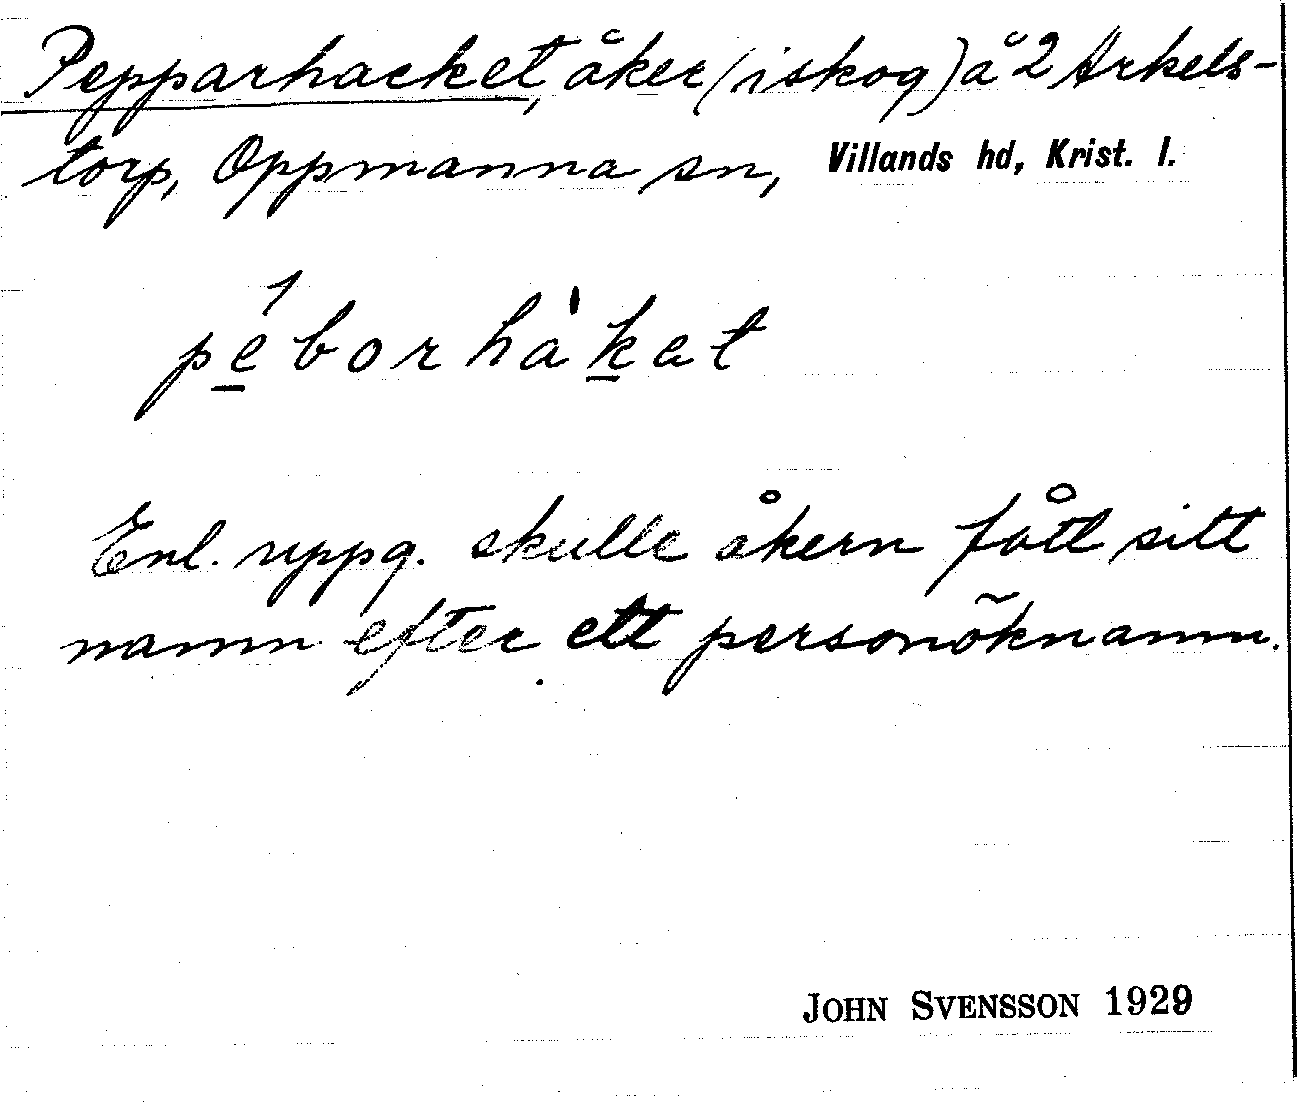 Pepparhacket, åker (i skog) å 2 Arkels-
torp, Oppmanna sn, Villands hd, Krist. l.
péborhàkat
Enl. uppg. skulle åkern fått sitt
namn efter ett personöknamn.
JOHN SVENSSON 1929